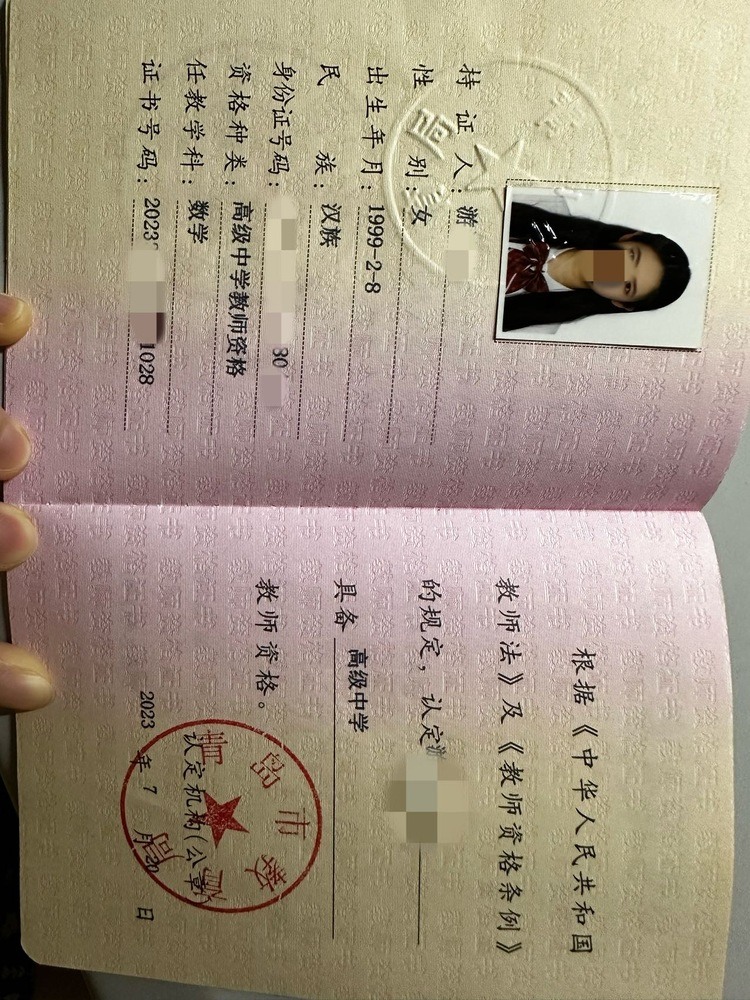 持证人：游
性别：女
出生年月：1999-2-8
民族：汉族
身份证号码：30
资格种类：高级中学教师资格
任教学科：数学
证书号码：2023 1028
根据《中华人民共和国
教师法》及《教师资格条例》
的规定，认定游
具备 高级中学
教师资格。
认定机构（公章）
2023年7月20日
青岛市教育局